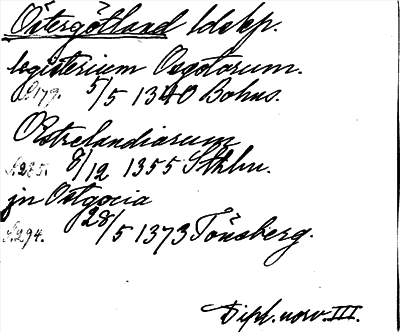 Östergötland ldskp.
legisterium Osgotorum.
S. 179. 5/5 1340 Bohus.
Œstrelandiarum
S. 285. 8/12 1355 Sthlm.
jn Ostgocia
S. 294. 28/5 1373 Tönsberg.
Dipl. norv. III.